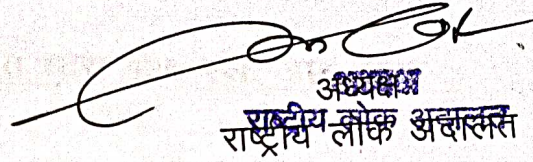 अध्यक्ष
राष्ट्रीय लोक अदालत
राष्ट्रीय लोक अदालत